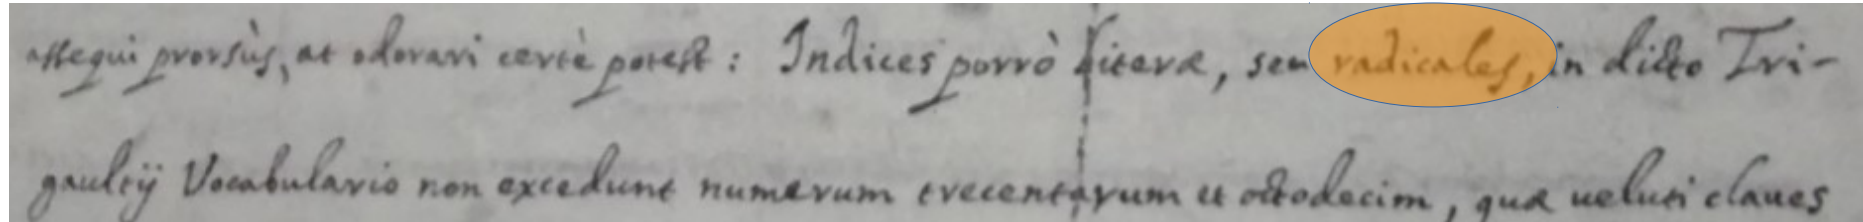 assequi prorsùs, at odorari certè potest : Indices porrò literæ, seu radicales, in dicto Tri-
gaultij Vocabulario non excedunt numerum trecentarum et octodecim, quæ ueluti claues